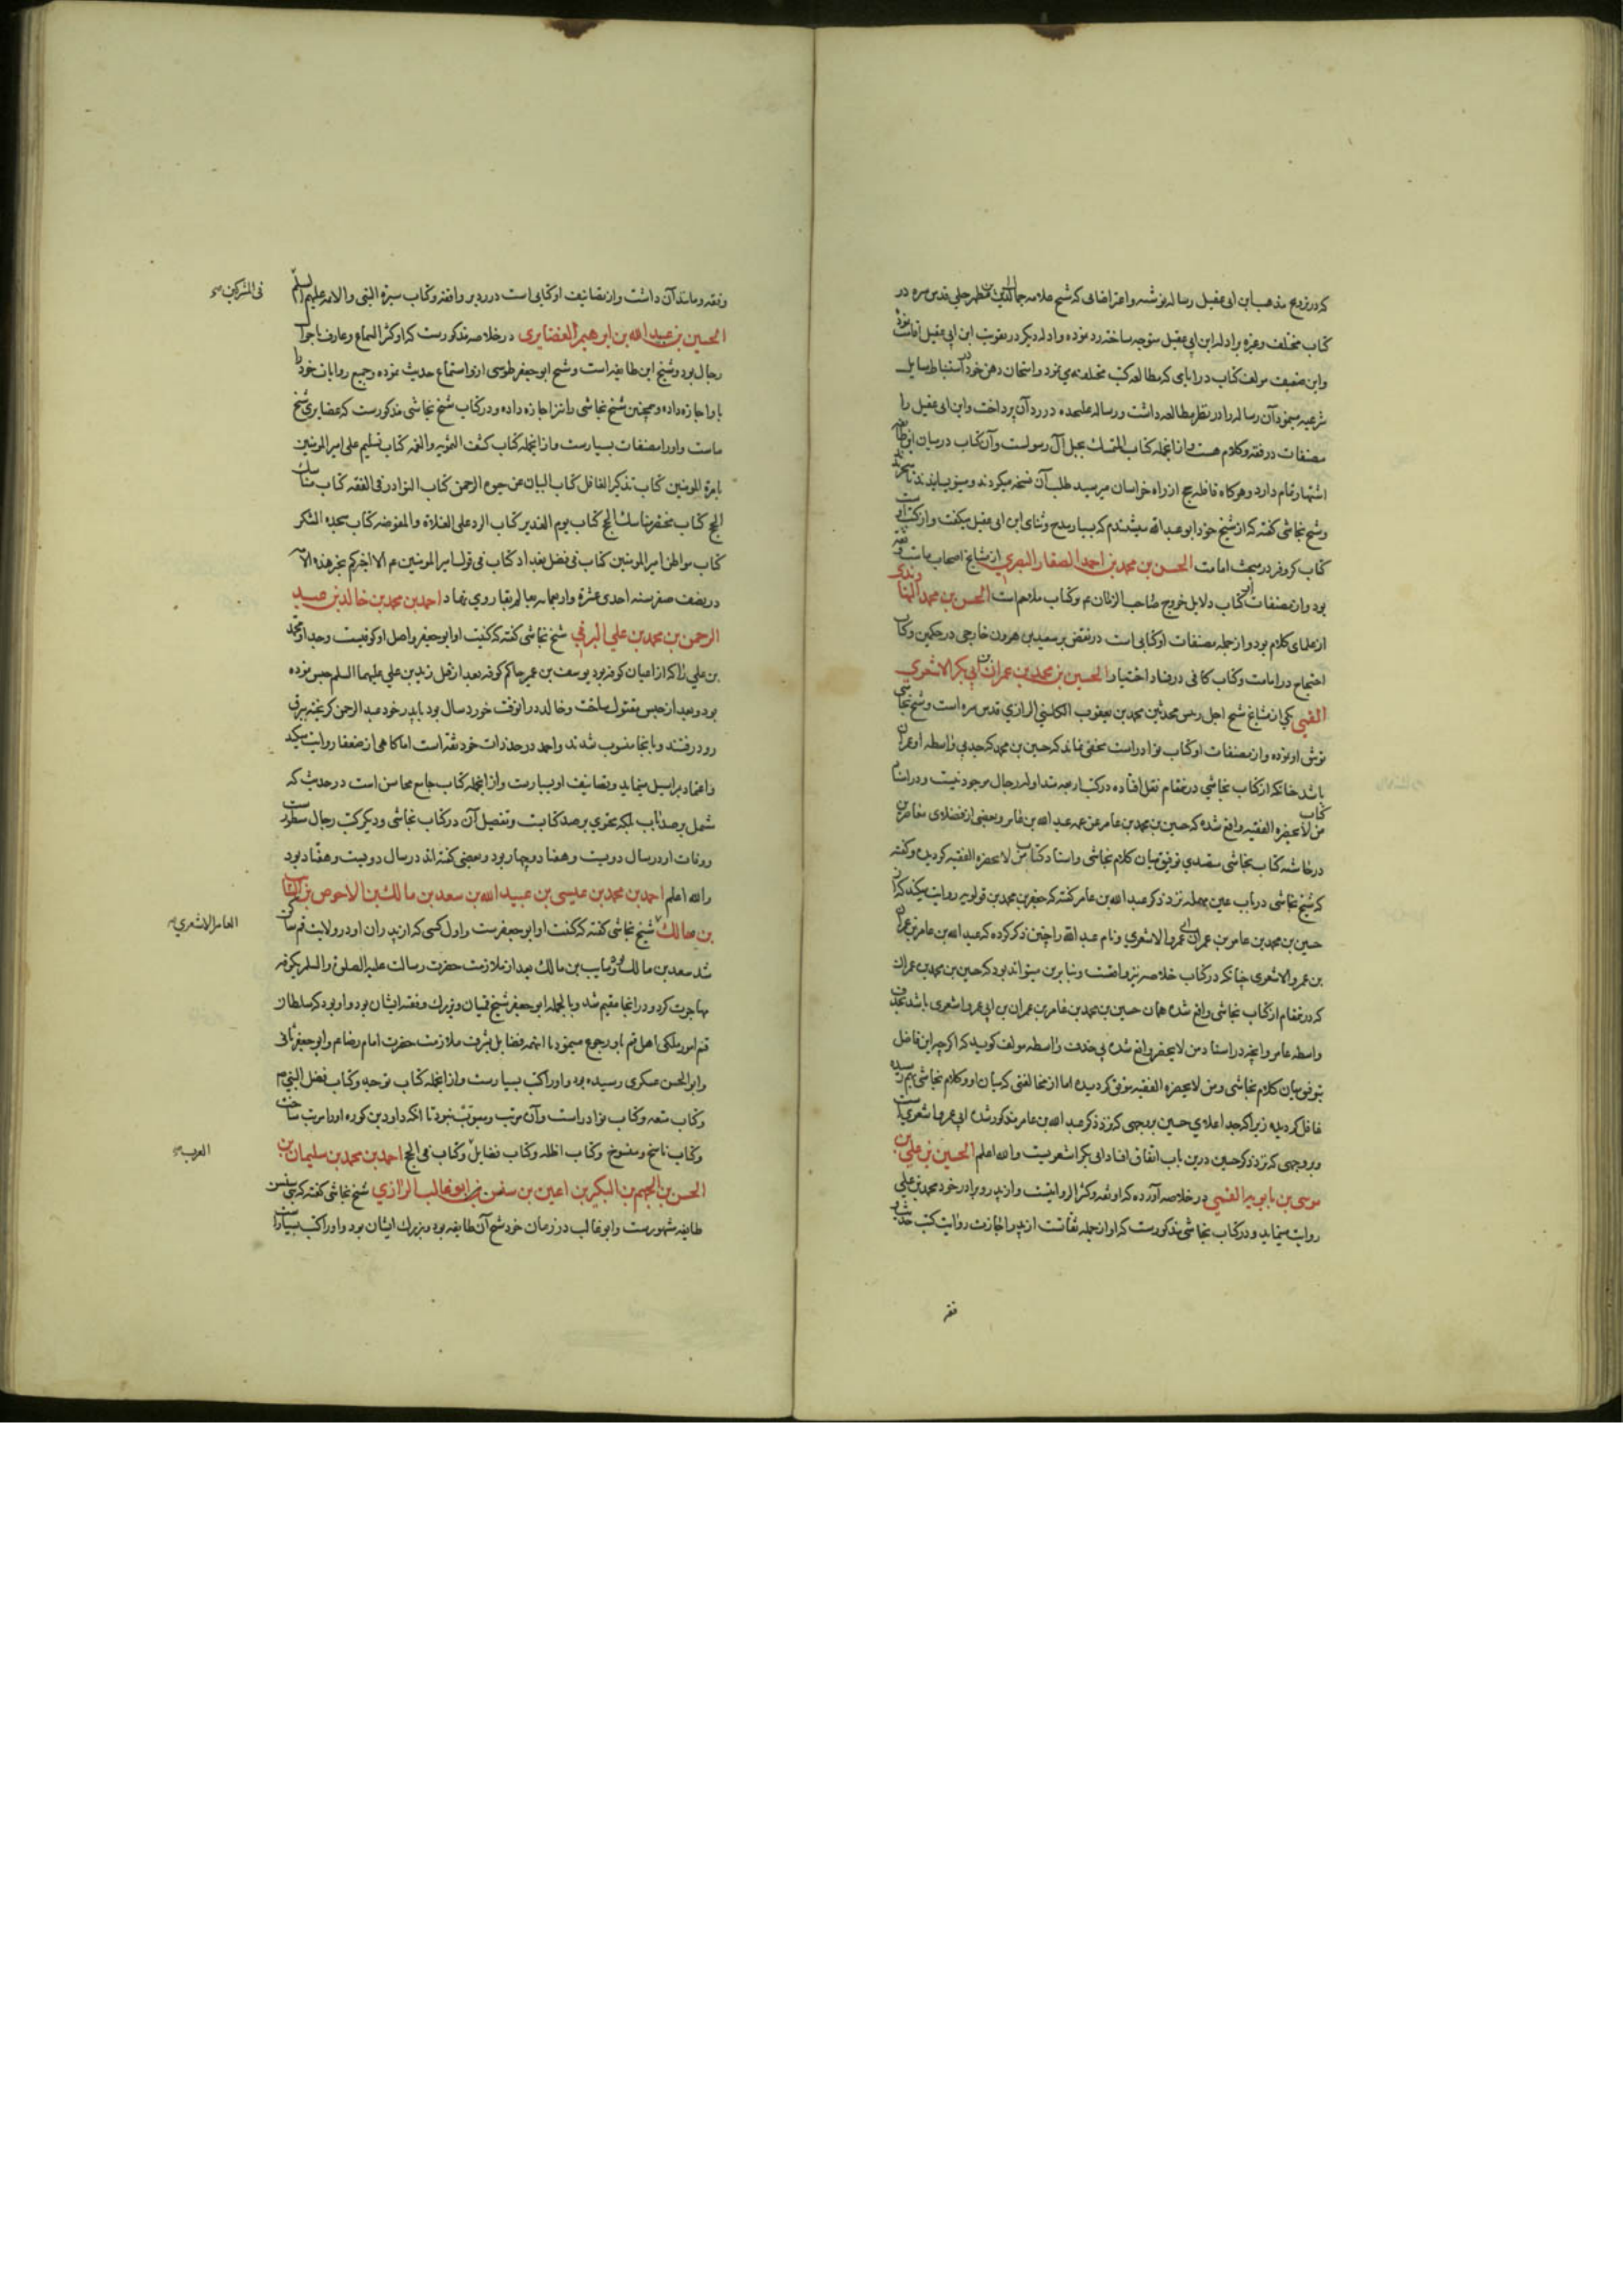 که در ترویج مذهب ابن ابی عقیل رساله نوشته و اعتراضاتی که شیخ علامه جمال الدین بن مطهر حلی قدس سره در
کتاب مختلف وغیره بر ادله ابن ابی عقیل متوجه ساخته رد نموده و ادله دیگر در تقویت ابن ابی عقیل اقامت نموده
واین ضعیف مولف کتاب در ایامی که مطالعه کتب مختلفه می نمود و امتحان ذهن خود در استنباط مسایل
شرعیه مینمود آن رساله را در نظر مطالعه داشت و رساله علیحده در رد آن پرداخت وابن ابی عقیل را
مصنفات در فقه وکلام هست و از انجمله کتاب المتمسک بحبل آل رسولست وآن کتاب در میان این طایفه
اشتهار تمام دارد و هرکاه قافله حج از راه خراسان میرسید طلب آن نسخه میکردند و مینویسانیدند یا میخریدند
وشیخ نجاشی کفته که از شیخ خود ابو عبد الله میشنیدم که بسیار مدح وثنای ابن ابی عقیل میکفت و از کتب اوست
کتاب کر وفر در مبحث امامت الحسن بن محمد بن احمد الصفار البصری از مشایخ اصحاب ماست وثقه
بود و از مصنفات او کتاب دلایل خروج صاحب الزمان عم وکتاب ملاحم است الحسن بن محمد النهاوندی
از علمای کلام بود و از جمله مصنفات او کتابی است در نقض بر سعید بن هرون خارجی در حکمین وکتاب
احتجاج در امامت وکتاب کافی در فساد اختیار الحسین بن محمد بن عمران بن ابی بکر الاشعری
القمی یکی از مشایخ شیخ اجل رئیس محدثین محمد بن یعقوب الکلینی الرازی قدس سره است وشیخ نجاشی
توثیق او نموده و از مصنفات او کتاب نوادر است مخفی نماند که حسین بن محمد که جد بی واسطه او عمران
باشد چنانکه از کتاب نجاشی درینمقام نقل افتاده در کتب اربعه متداوله رجال موجود نیست و در اسناد
کتاب من لا یحضره الفقیه واقع شده که حسین بن محمد بن عامر عن عمه عبد الله بن عامر وبعضی از فضلای معاصرین
در حاشیه کتاب نجاشی متصدی توفیق میان کلام نجاشی واسناد کتاب من لا یحضره الفقیه کردیده وکفته
که شیخ نجاشی در باب عین مهمله نزد ذکر عبد الله بن عامر کفته که جعفر بن محمد بن قولویه روایت میکند که از
حسین بن محمد بن عامر بن عمران بن ابی عمرو الاشعری ونام عبد الله را چنین ذکر کرده که عبد الله بن عامر بن عمران
بن عمرو الاشعری چنانکه در کتاب خلاصه نیز واقعست وبنا برین میتواند بود که حسین بن محمد بن عمران
که درینمقام از کتاب نجاشی واقع شده همان حسین بن محمد بن عامر بن عمران بن ابی عمرو اشعری باشد بحذف
واسطه عامر وانچه در اسناد من لا یحضر واقع شده بی حذف واسطه مولف کوید که اکرچه این فاضل
بتوفیق میان کلام نجاشی ومن لا یحضره الفقیه موفق کردیده اما از مخالفتی که میان او وکلام نجاشی بهم رسیده
غافل کردیده زیرا که جد اعلای حسین بر وجهی که نزد ذکر عبد الله بن عامر مذکور شده ابی عمرو اشعریست
وبر وجهی که نزد ذکر حسین درین باب اتفاق افتاد ابی بکر اشعریست والله اعلم الحسین بن علی بن
موسی بن بابویه القمی در خلاصه آورده که او ثقه وکثیر الروایتست و از پدر وبرادر خود محمد بن علی
روایت مینماید و در کتاب نجاشی مذکورست که او از جمله ثقاتست از پدر اجازت روایت کتب حدیث
فقه
وفقه ومانند آن داشت و از تصانیف او کتابی است در رد بر واقفه وکتاب سیرة النبی والائمه علیهم السلم
فی المشرکین صح
الحسین بن عبید الله بن ابرهیم الغضایری در خلاصه مذکورست که او کثیر السماع وعارف باحوال
رجال بود وشیخ این طایفه است وشیخ ابو جعفر طوسی از و استماع حدیث نموده وجمیع روایات خود را
باو اجازه داده وهمچنین شیخ نجاشی را نیز اجازه داده و در کتاب شیخ نجاشی مذکورست که غضایری شیخ
ماست واورا مصنفات بسیارست و از انجمله کتاب کشف التمویه والغمه کتاب تسلیم علی امیر المومنین
بامرة المومنین کتاب تذکیر الغافل کتاب البیان عن حبوة الرحمن کتاب النوادر فی الفقه کتاب مناسک
الحج کتاب مختصر مناسک الحج کتاب یوم الغدیر کتاب الرد علی الغلاة والمفوضه کتاب سجده الشکر
کتاب مواطن امیر المومنین کتاب فی فضل بغداد کتاب فی قول امیر المومنین عم الا اخبرکم بخیر هذه الامه
در نصف صفر سنه احدی عشرة واربعمایه بعالم بقا روی نهاد احمد بن محمد بن خالد بن عبد
الرحمن بن محمد بن علی البرقی شیخ نجاشی کفته که کنیت او ابو جعفر واصل او کوفیست وجد او محمد
بن علی را که از اعیان کوفه بود یوسف بن عمر حاکم کوفه بعد از قتل زید بن علی علیهما السلم حبس نموده
بود وبعد از حبس مقتول ساخت وخالد در انوقت خورد سال بود با پدر خود عبد الرحمن کریخته ببرق
رود رفتند وبانجا منسوب شدند واحمد در حد ذات خود ثقه است اما کاهی از ضعفا روایت میکند
واعتماد بر مراسیل مینماید وتصانیف او بسیارست و از انجمله کتاب جامع محاسن است در حدیث که
شمل بر صد باب بلکه محتوی بر صد کتابست وتفصیل آن در کتاب نجاشی ودیکر کتب رجال مسطورست
ووفات او در سال دویست وهفتاد وچهار بود وبعضی کفته اند در سال دویست وهفتاد بود
والله اعلم احمد بن محمد بن عیسی بن عبید الله بن سعد بن مالک بن الاحوص بن السائب
بن مالک شیخ نجاشی کفته که کنیت او ابو جعفرست واول کسی که از پدران او در ولایت قم ساکن
العامر الاشعری صح
شد سعد بن مالک بود وسایب بن مالک بعد از ملازمت حضرت رسالت علیه الصلوة والسلم بکوفه
مهاجرت کرد و در انجا مقیم شد وبالجمله ابو جعفر شیخ قمیان وبزرک وفقیه ایشان بود واو بود که سلطان
قم امور ملکی اهل قم باو رجوع مینمود با اینهمه فضایل بشرف ملازمت حضرت امام رضا عم وابو جعفر ثانی
وابو الحسن عسکری رسیده بود واورا کتب بسیارست و از انجمله کتاب توحید وکتاب فضل النبی صم
وکتاب متعه وکتاب نوادر است وآن مرتب ومبوب نبود تا انکه داود بن کوره اورا مرتب ساخت
وکتاب ناسخ ومنسوخ وکتاب اظله وکتاب فضایل وکتاب فی الحج احمد بن محمد بن سلیمان بن
العرب صح
الحسن بن الجهم بن البکیر بن اعین بن سنسن بن ابو غالب الرازی شیخ نجاشی کفته که بنی سنسن
طایفه مشهورست وابو غالب در زمان خود شیخ آن طایفه بود وبزرک ایشان بود واورا کتب بسیارست